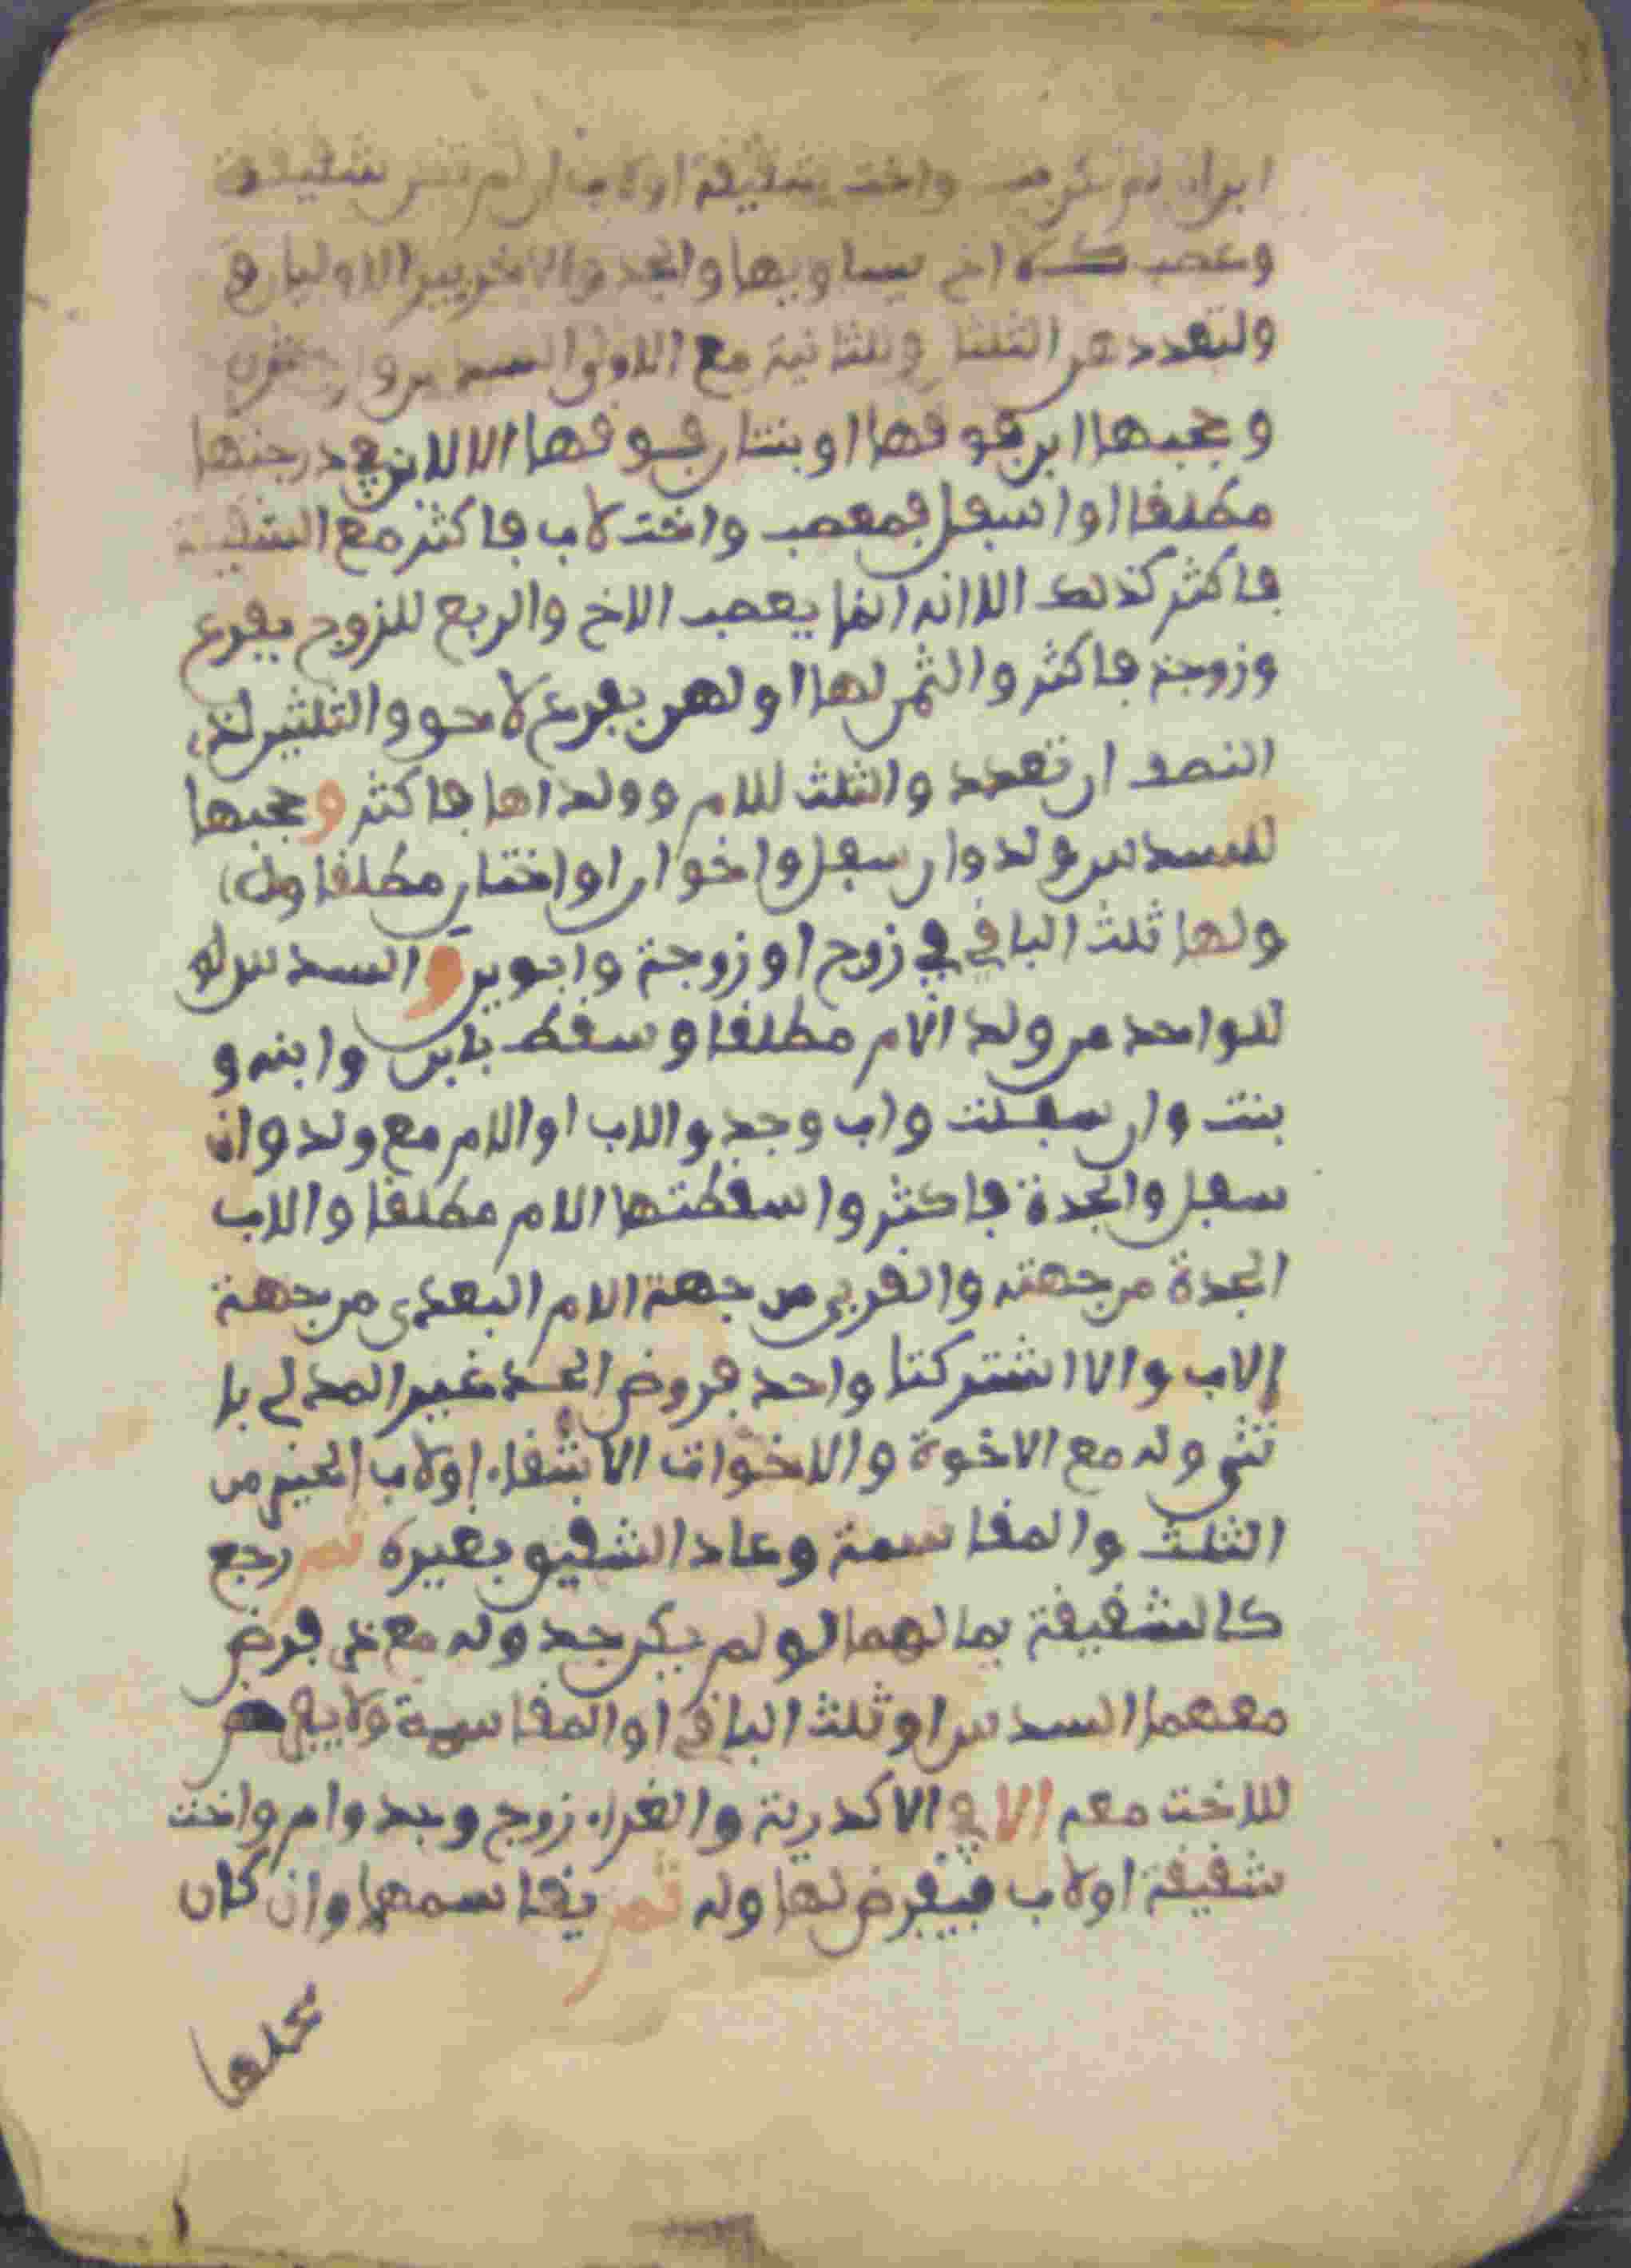 ابن ان لم تكن بنت واخت شقيقة او لاب ان لم تكن شقيقة
وعصب كلا اخ يساويها والجد والاخريين الاوليان و
ولتعددهن الثلثان وللثانية مع الاولى السدس وان كثرن
وحجبها ابن فوقها او بنتان فوقها الا الابن في درجتها
مطلقا او اسفل فمعصب واخت لاب فاكثر مع الشقيقة
فاكثر كذلك الا انه انما يعصب الاخ والربع للزوج بفرع
وزوجة فاكثر والثمن لها او لهن بفرع لاحق والثلثين لذي
النصف ان تعدد والثلث للام وولداها فاكثر وحجبها
للسدس ولد وان سفل واخوان او اختان مطلقا
ولها ثلث الباقي في زوج او زوجة وابوين والسدس
للواحد من ولد الام مطلقا وسقط بابن وابنه و
بنت وان سفلت واب وجد والاب او الام مع ولد وان
سفل والجدة فاكثر واسقطتها الام مطلقا والاب
الجدة من جهته والقربى من جهة الام البعدى من جهة
الاب والا اشتركتا واحد فروض الجد غير المدلى با
نثى وله مع الاخوة والاخوات الاشقاء او لاب الخير من
الثلث والمقاسمة وعاد الشقيق بغيره ثم رجع
كالشقيقة بما لهما لو لم يكن جد وله مع ذى فرض
معهما السدس او ثلث الباقي او المقاسمة ولا يفرض
للاخت معه الا في الاكدرية والغراء زوج وجد وام واخت
شقيقة او لاب فيفرض لها وله ثم يقاسمها وان كان
محلها